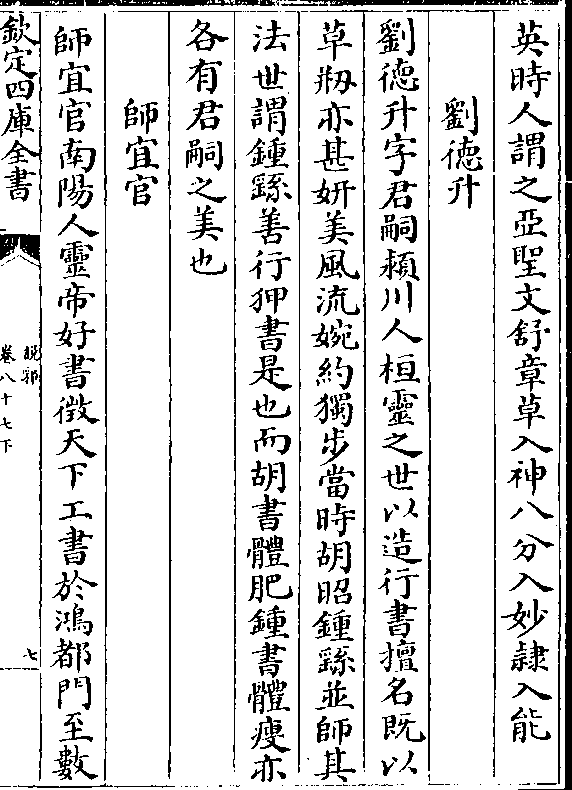 英時人謂之亞聖文舒章草入神八分入妙隷入能
劉德升
劉德升字君嗣潁川人桓靈之世以造行書擅名既以
草剏亦甚妍美風流婉約獨步當時胡昭鍾繇並師其
法世謂鍾繇善行狎書是也而胡書體肥鍾書體瘦亦
各有君嗣之美也
師宜官
師宜官南陽人靈帝好書徵天下工書於鴻都門至數
欽定四庫全書
說郛
卷八十七下
七